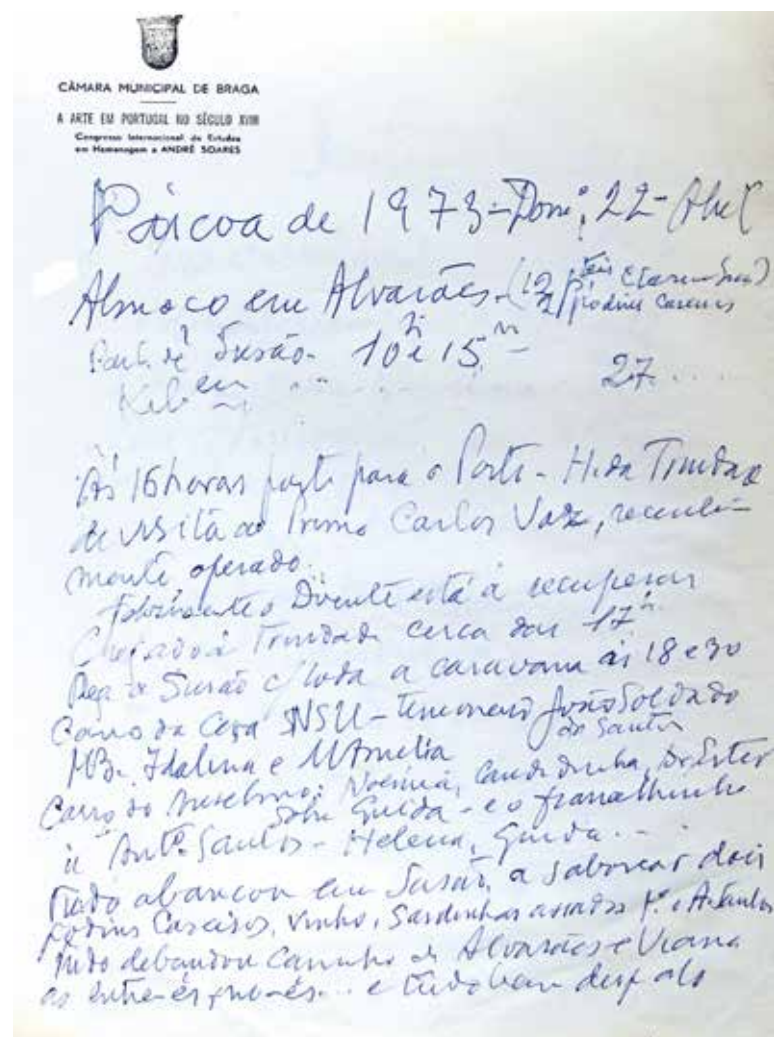 CÂMARA MUNICIPAL DE BRAGA
A ARTE EM PORTUGAL NO SÉCULO XVIII
Congresso Internacional de Estudos
em Homenagem a ANDRÉ SOARES
Páscoa de 1973 - Domº, 22 - Abril
Almoço em Alvarães - (12
podins caseiros
Susão - 10 e 15
em 27.
Às 16 horas parte para o Porto - H. da Trindade
de visita ao Primo Carlos Vaz, recente-
mente operado.
Felizmente o Doente está a recuperar
Chegado à Trindade cerca das 17 h.
a Susão c/ toda a caravana às 18 e 30
Carro da Casa NSU - timoneiro João Soldado
dos Santos
MB. Idalina e M Amélia
Carro do Anselmo: Noémia, Candidinha, Dr. Ester
Guida - e o
Antº. Santos - Helena, Guida. -
Tudo abancou em Susão, a saborear dois
podins caseiros, vinho, sardinhas assadas
Tudo debandou caminho de Alvarães e Viana
e tudo bem